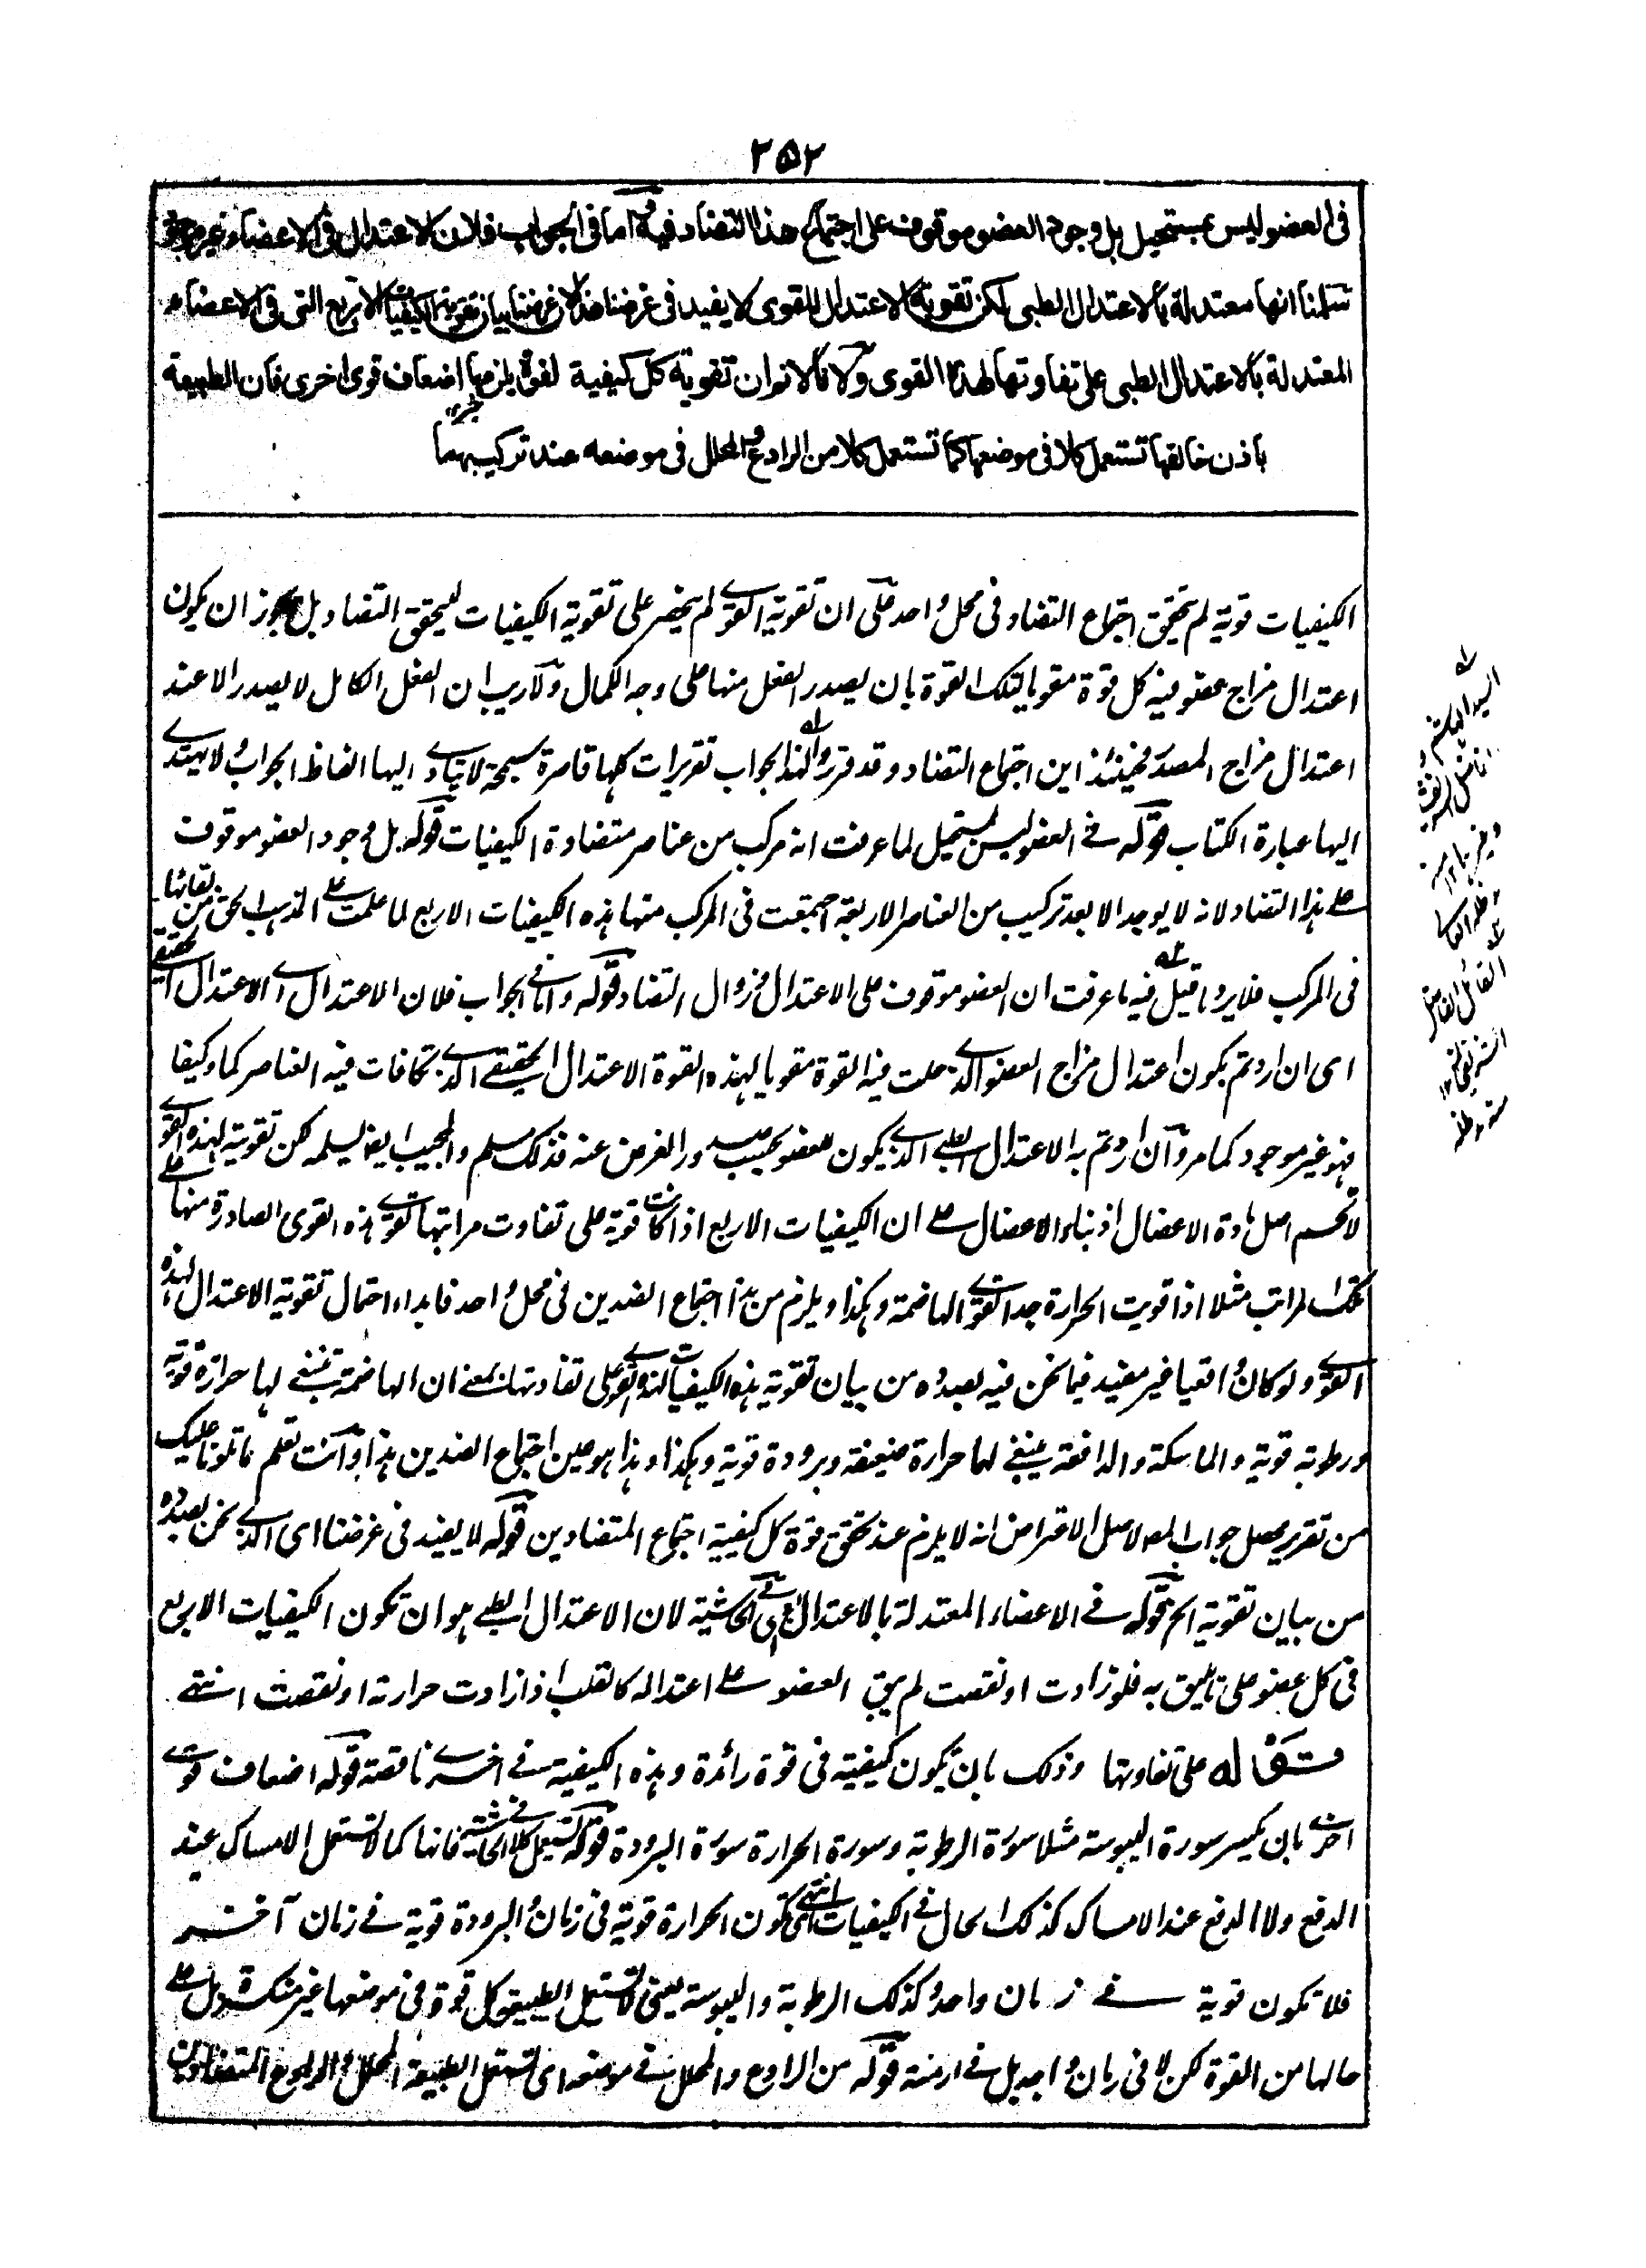 ۲۵۲
فى العضو ليس بمستحيل بل وجود العضو موقوف على اجتماع هذا التضاد فيه واما فى الجواب فلان الاعتدال فى الاعضاء غير موجود
سلمنا انها معتدلة بالاعتدال الطبى لكن تقوية الاعتدال للقوى لا يفيد فى غرضنا هذا لان غرضنا بيان تقوية الكيفيات الاربع التى فى الاعضاء
المعتدلة بالاعتدال الطبى على تفاوتها لهذه القوى ولا نالانوان تقوية كل كيفية لقوة يلزمها اضعاف قوى اخرى فان الطبيعة
باذن خالقها تستعمل كلا فى موضعها كما تستعمل كلا من الرادع والمحلل فى موضعه عند تركيبهما
الكيفيات قوية لم يتحقق اجتماع التضاد فى محل واحد على ان تقوية القوى لم ينحصر على تقوية الكيفيات ليحقق التضاد بل يجوز ان يكون
اعتدال مزاج عضو فيه كل قوة مقويا لتلك القوة بان يصدر الفعل منها على وجه الكمال ولا ريب ان الفعل الكامل لا يصدر الا عند
اعتدال مزاج المصدر فحينئذ اين اجتماع التضاد وقد قرروا لهذا الجواب تقريرات كلها قاصرة سمجة لا تبادى اليها الفاظ الجواب ولا يهتدى
اليها عبارة الكتاب قوله فى العضو ليس بمستحيل لما عرفت انه مركب من عناصر متضادة الكيفيات قوله بل وجود العضو موقوف
على هذا التضاد لانه لا يوجد الا بعد تركيب من العناصر الاربعة اجتمعت فى المركب منها هذه الكيفيات الاربع لما علمت على المذهب الحق من بقائها
فى المركب فلا يرد ما قيل فيه ما عرفت ان العضو موقوف على الاعتدال وزوال التضاد قوله واما فى الجواب فلان الاعتدال اى الاعتدال الحقيقى
اى ان اردتم بكون اعتدال مزاج العضو الذى حلت فيه القوة مقويا لهذه القوة الاعتدال الحقيقى الذى تكافات فيه العناصر كما وكيفا
فهو غير موجود كما مر وان اردتم به الاعتدال الطبى الذى يكون للعضو بحسب صدور الغرض عنه فذلك مسلم والمجيب ايضا يسلمه لكن تقويته لهذه القوى
لا تحسم اصل مادة الاعضال اذ بناء الاعضال على ان الكيفيات الاربع اذا كانت قوية على تفاوت مراتبها تقوى هذه القوى الصادرة منها على
تلك المراتب مثلا اذا قويت الحرارة جدا تقوى الهاضمة وهكذا ويلزم من هذا اجتماع الضدين فى محل واحد فابداء احتمال تقوية الاعتدال لهذه
القوى ولو كان واقعيا غير مفيد فيما نحن فيه بصدده من بيان تقوية هذه الكيفيات لهذه القوى على تفاوتها بمعنى ان الهاضمة ينبغى لها حرارة قوية
ورطوبة قوية والماسكة والدافعة ينبغى لهما حرارة ضعيفة وبرودة قوية وهكذا وهذا هو عين اجتماع الضدين هذا وانت تعلم ما تلونا عليك
من تقرير محصل جواب المص لاصل الاعتراض انه لا يلزم عند تحقق قوة كل كيفية اجتماع المتضادين قوله لا يفيد فى غرضنا اى الذى نحن بصدده
من بيان تقوية الخ قوله فى الاعضاء المعتدلة بالاعتدال الطبى فى الحاشية لان الاعتدال الطبى هو ان تكون الكيفيات الاربع
فى كل عضو على ما يليق به فلو زادت او نقصت لم يبق العضو على اعتداله كالقلب اذا زادت حرارته او نقصت انتهى
قوله على تفاوتها وذلك بان يكون كيفية فى قوة زائدة وهذه الكيفية فى اخرى ناقصة قوله اضعاف قوى
اخرى بان يكسر سورة اليبوسة مثلا سورة الرطوبة وسورة الحرارة سورة البرودة قوله تستعمل كلا فى الحاشية فانها كما لا تستعمل الامساك عند
الدفع ولا الدفع عند الامساك كذلك الحال فى الكيفيات انتهى اى تكون الحرارة قوية فى زمان والبرودة قوية فى زمان آخر
فلا تكون قوية فى زمان واحد وكذلك الرطوبة واليبوسة يعنى تستعمل الطبيعة كل قوة فى موضعها غير منكسرة بل على
حالها من القوة لكن لا فى زمان واحد بل فى ازمنة قوله من الرادع والمحلل فى موضعه اى تستعمل الطبيعة المحلل والرادع المتضادين
السيد الهاشم
القائل الفاضل